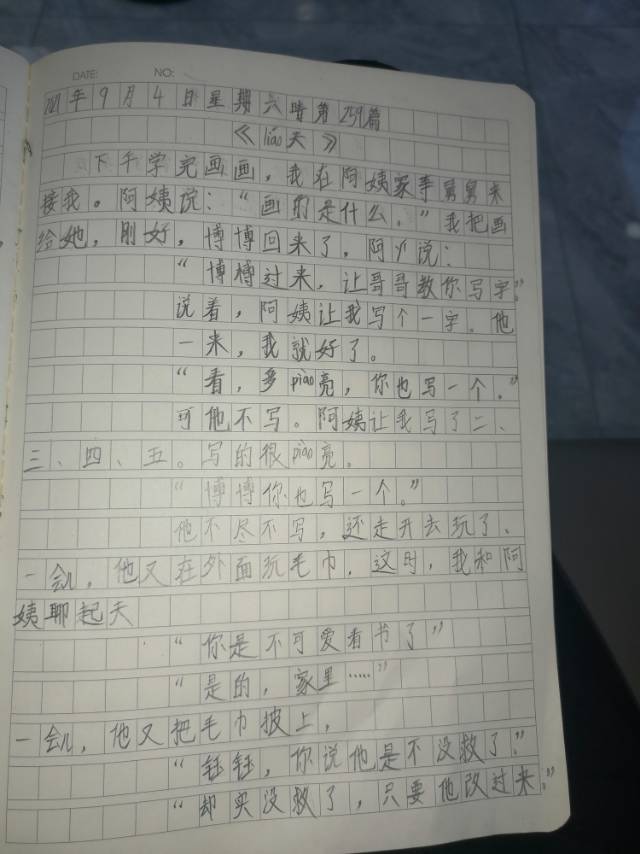 DATE: NO:
2021年9月4日星期六晴第259篇
《liáo天》
下千学完画画，我在阿姨家等舅舅来
接我。阿姨说：“画的是什么，”我把画
给她，刚好，博博回来了，阿y说：
“博博过来，让哥哥教你写字”
说着，阿姨让我写个一字，他
一来，我就好了。
“看，多piào亮，你也写一个。”
可他不写。阿姨让我写了二、
三、四、五。写的很piào亮。
“博博你也写一个。”
他不尽不写，还走开去玩了、
一会儿，他又在外面玩毛巾，这时，我和阿
姨聊起天
“你是不可爱看书了”
“是的，家里……”
一会儿，他又把毛巾披上，
“钰钰，你说他是不没救了”
“却实没救了，只要他改过来。”